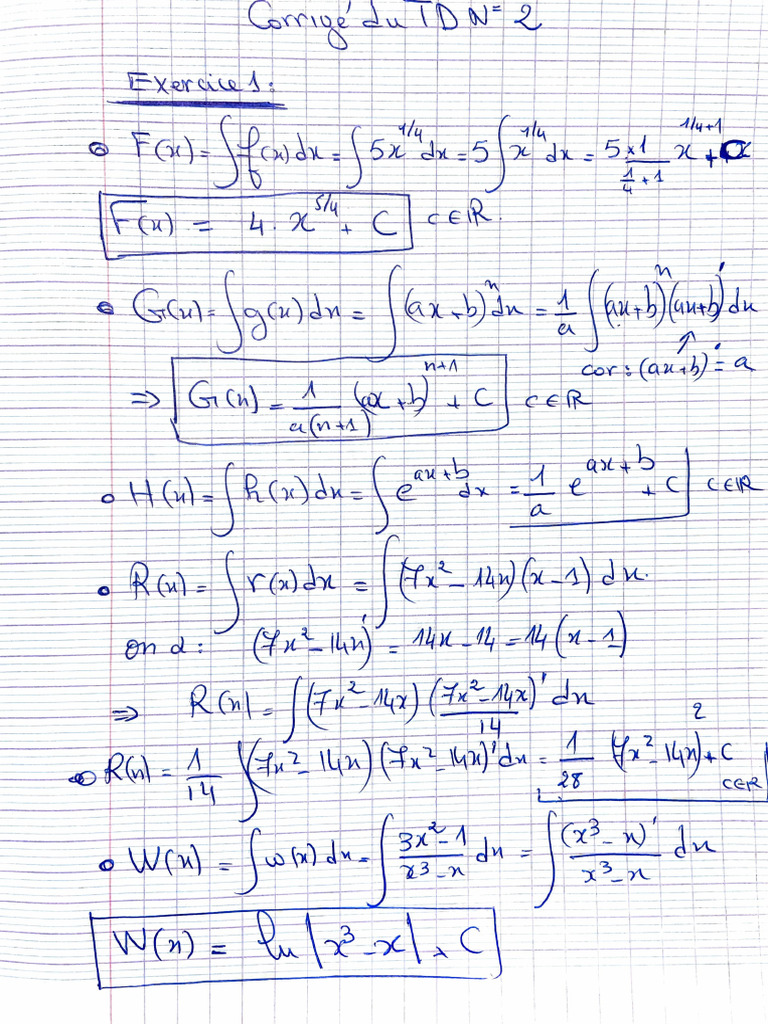 Corrigé du TD N° 2
Exercice 1:
F(x) = ∫ f(x) dx = ∫ 5x^{1/4} dx = 5 ∫ x^{1/4} dx = 5 × 1/(1/4 + 1) x^{1/4+1} + C
F(x) = 4 · x^{5/4} + C c∈ℝ.
G(x) = ∫ g(x) dx = ∫ (ax+b)^n dx = 1/a ∫ (ax+b)^n (ax+b)' dx
car : (ax+b)' = a
⇒ G(x) = 1/(a(n+1)) (ax+b)^{n+1} + C c∈ℝ
H(x) = ∫ h(x) dx = ∫ e^{ax+b} dx = 1/a e^{ax+b} + C c∈ℝ
R(x) = ∫ r(x) dx = ∫ (7x² - 14x)(x-1) dx.
on a : (7x² - 14x)' = 14x - 14 = 14(x-1)
⇒ R(x) = ∫ (7x² - 14x) (7x² - 14x)'/14 dx
R(x) = 1/14 ∫ (7x² - 14x)(7x² - 14x)' dx = 1/28 (7x² - 14x)² + C c∈ℝ
W(x) = ∫ w(x) dx = ∫ (3x² - 1)/(x³ - x) dx = ∫ (x³ - x)'/(x³ - x) dx
W(x) = ln |x³ - x| + C